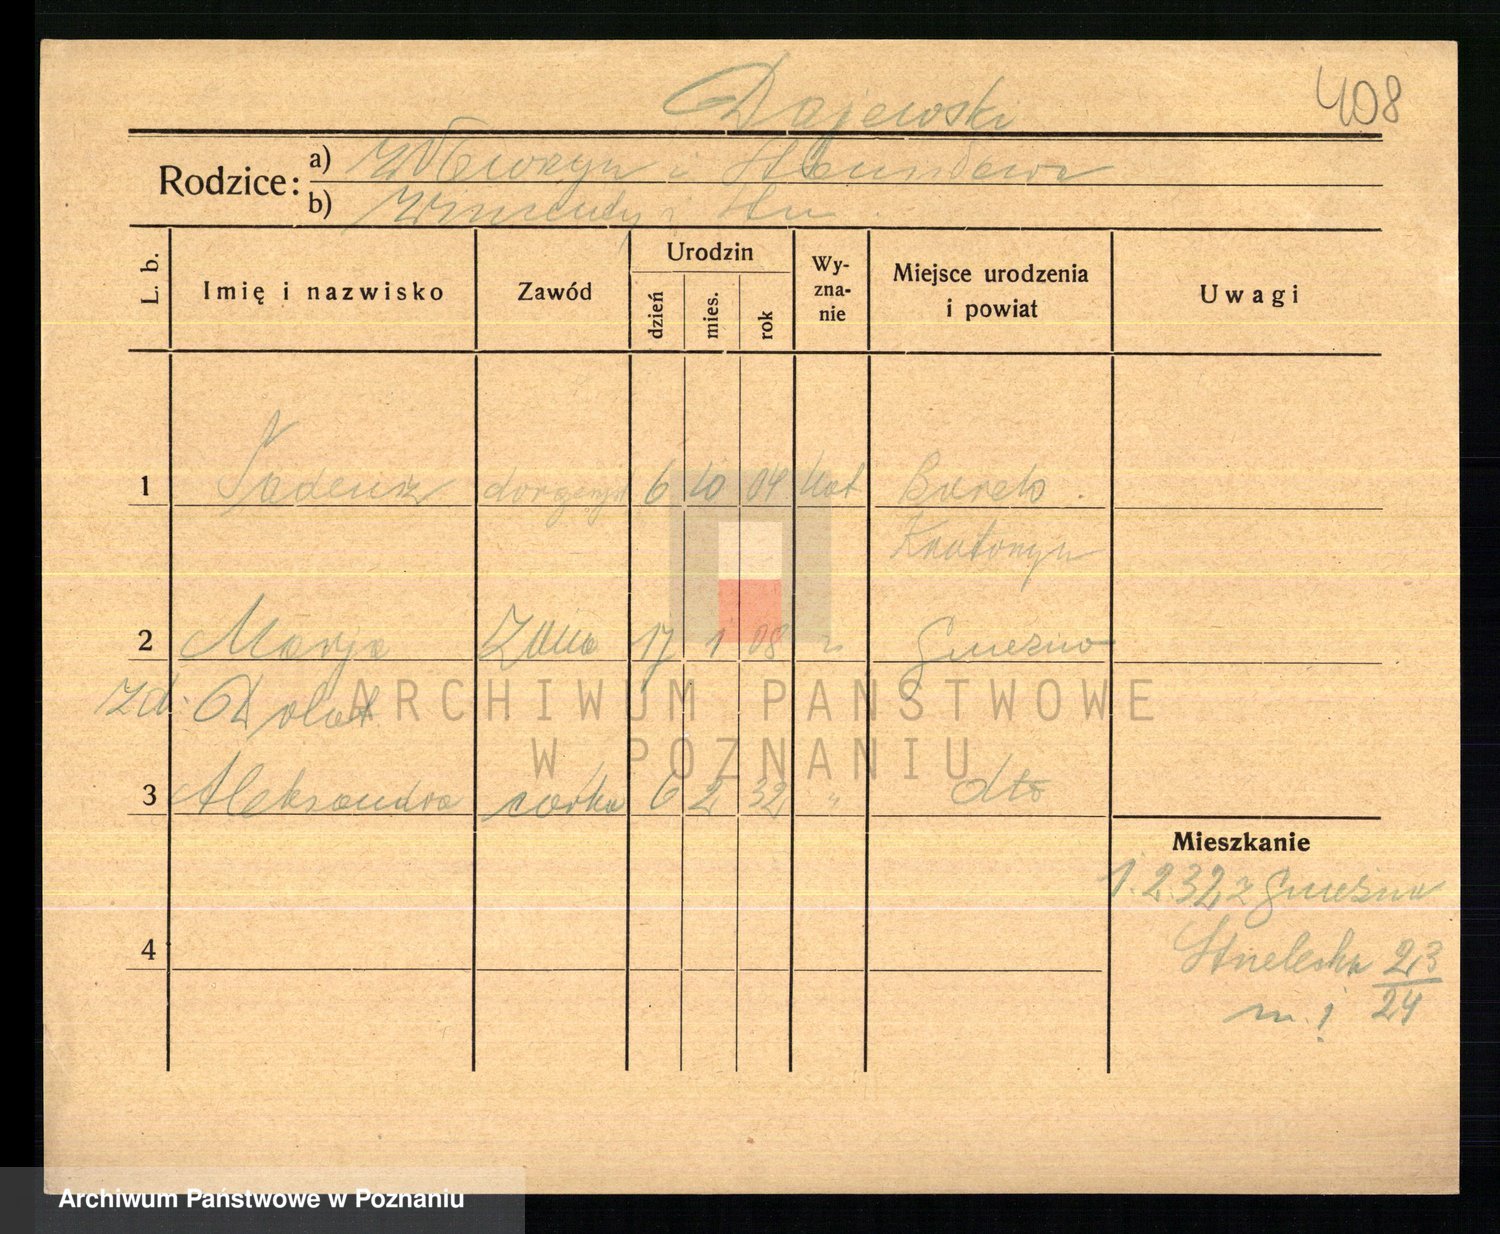 408
Dajewski
Rodzice:
a) Wawrzyn i Stanisława
b) Wincenty i
L. b.
Imię i nazwisko
Zawód
Urodzin
dzień
mies.
rok
Wy-
zna-
nie
Miejsce urodzenia
i powiat
Uwagi
1 Tadeusz 6 10 04 kat
Krotoszyn
2 Marja żona 17 1 08 " Gniezno
zd.
3 Aleksandra córka 6 2 32 " dto
Mieszkanie
1.2.32 z Gniezna
Strzelecka 23/24
m. 1
4
ARCHIWUM PAŃSTWOWE
W POZNANIU
Archiwum Państwowe w Poznaniu